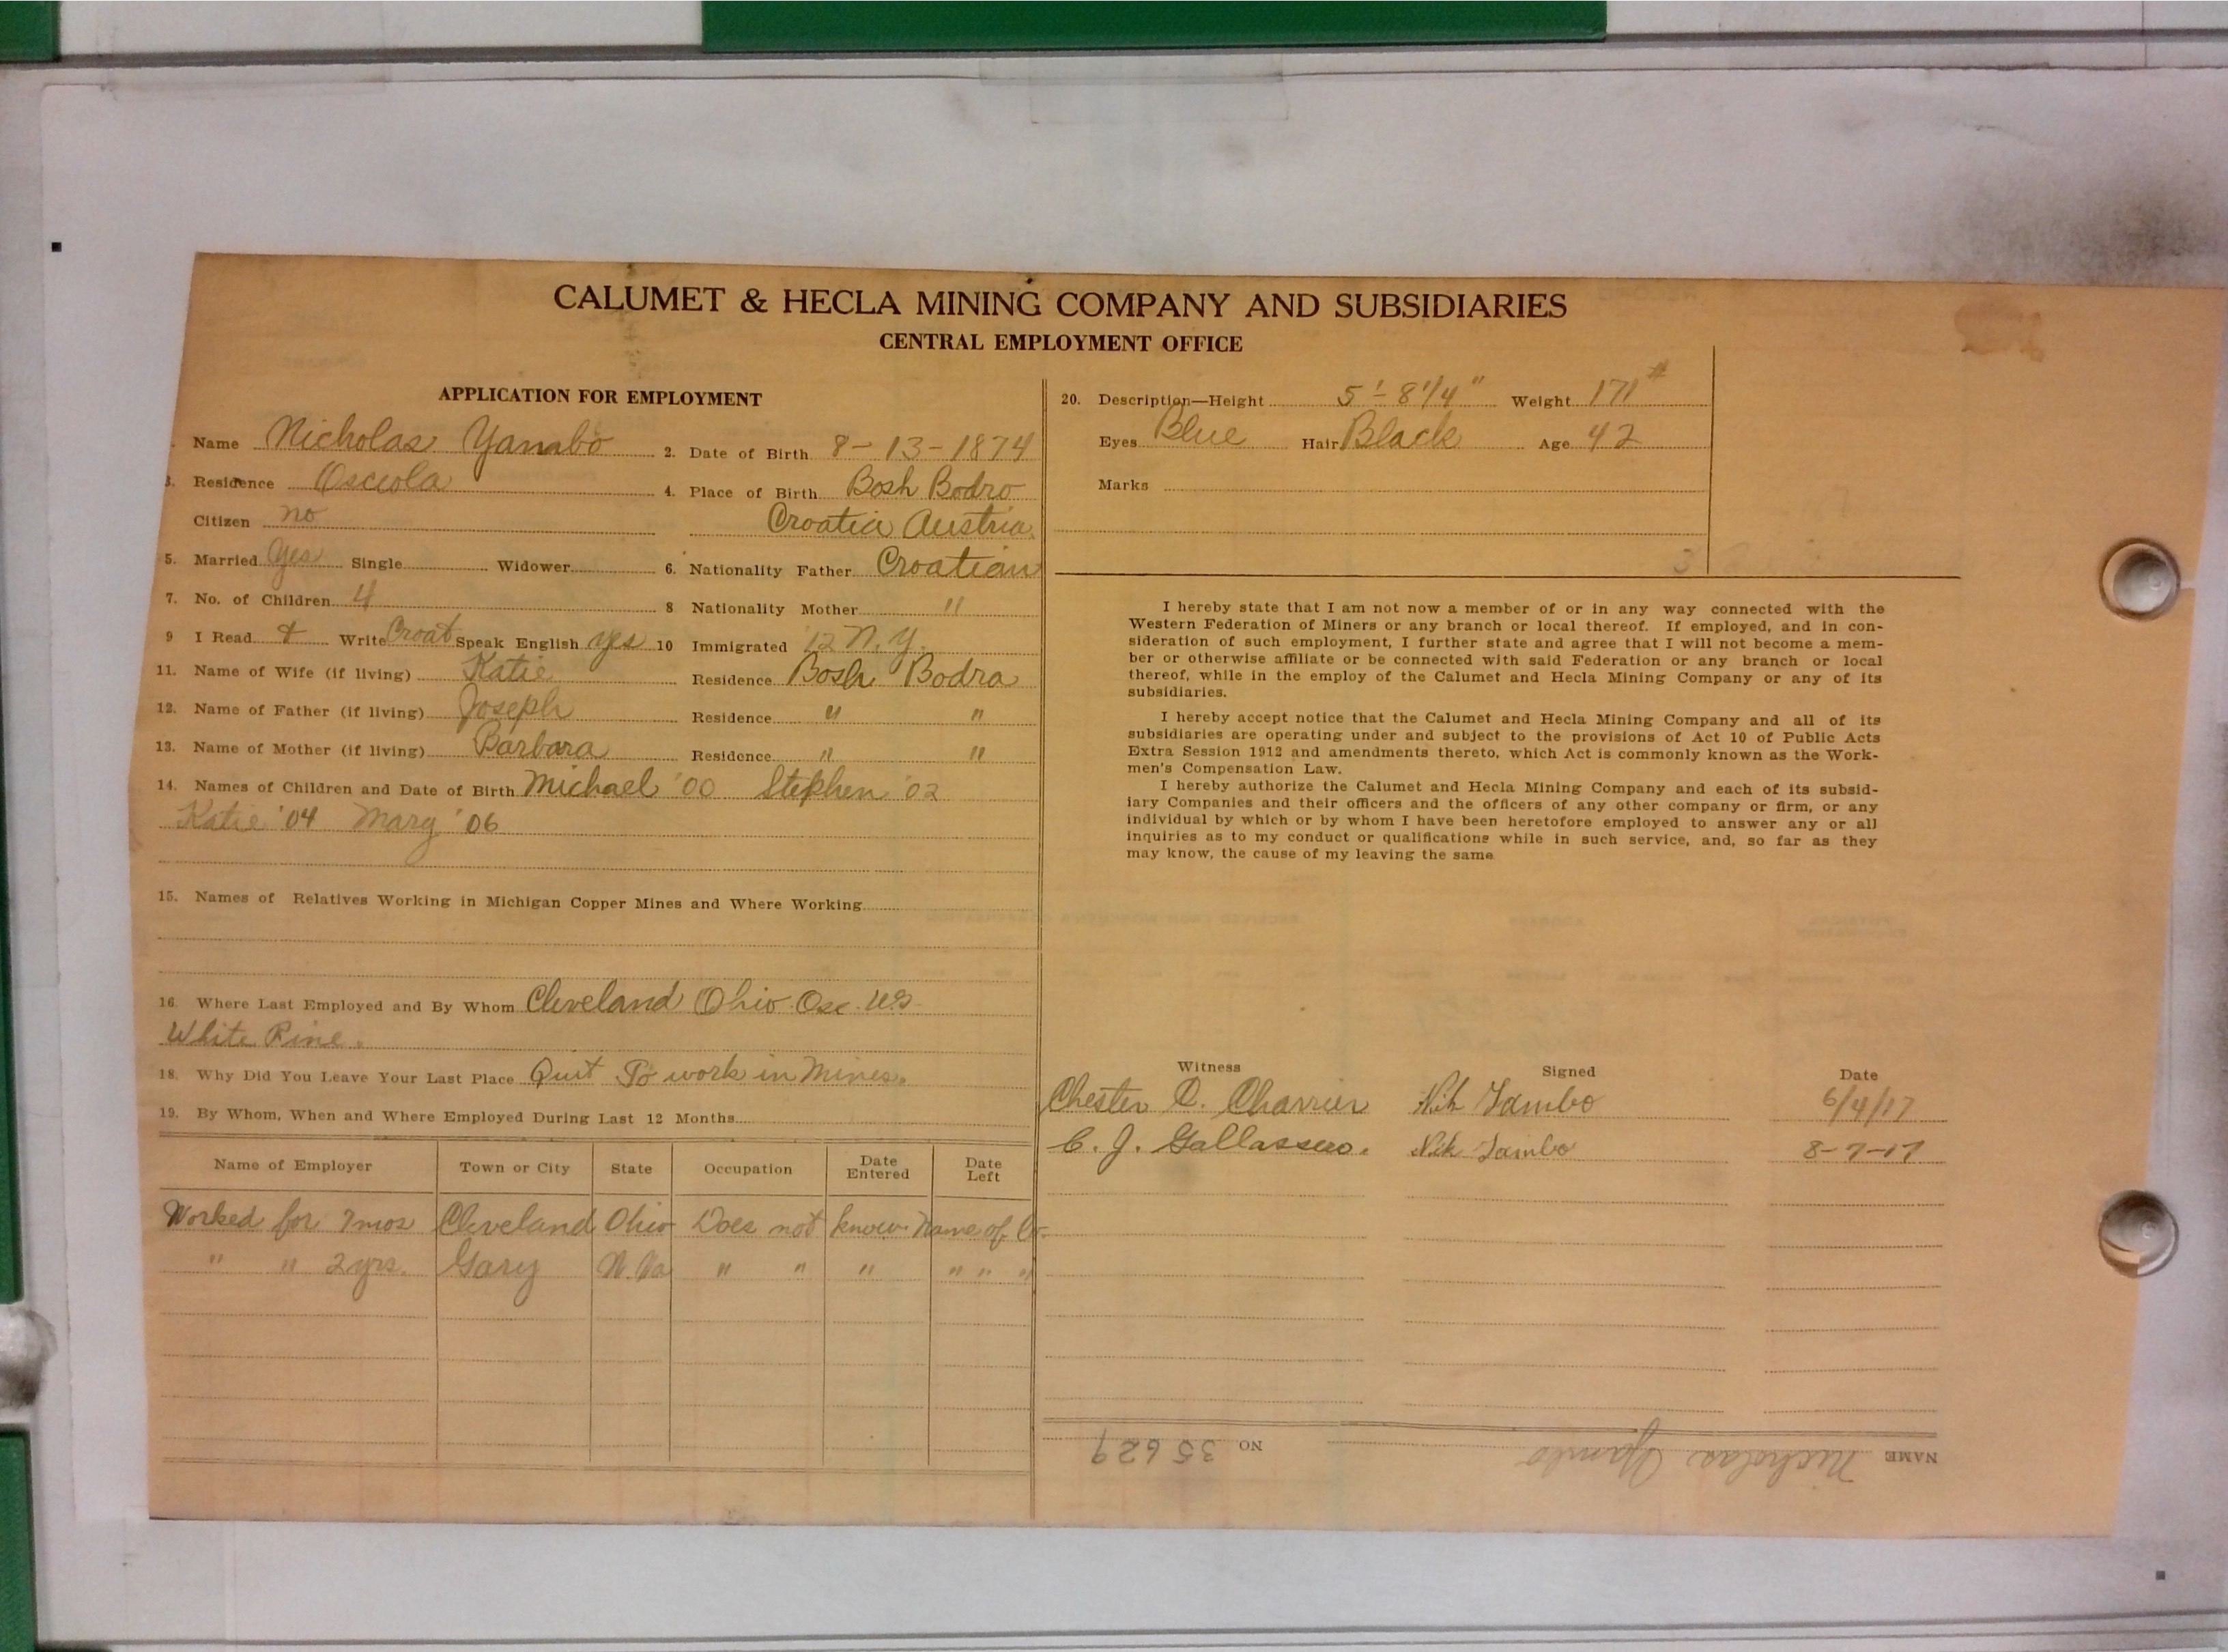 CALUMET & HECLA MINING COMPANY AND SUBSIDIARIES
CENTRAL EMPLOYMENT OFFICE
APPLICATION FOR EMPLOYMENT
Name Nicholas Yambo 2. Date of Birth 8-13-1874
3. Residence Osceola 4. Place of Birth Bosh Bodro
Citizen no Croatia Austria
5. Married yes Single Widower 6. Nationality Father Croatian
7. No. of Children 4 8 Nationality Mother "
9 I Read & Write Croat Speak English yes 10 Immigrated '12 N.Y.
11. Name of Wife (if living) Katie Residence Bosh Bodra
12. Name of Father (if living) Joseph Residence " "
13. Name of Mother (if living) Barbara Residence " "
14. Names of Children and Date of Birth Michael '00 Stephen '02
Katie '04 Mary '06
15. Names of Relatives Working in Michigan Copper Mines and Where Working
16. Where Last Employed and By Whom Cleveland Ohio Osc.
White Pine.
18. Why Did You Leave Your Last Place Quit To work in Mines.
19. By Whom, When and Where Employed During Last 12 Months
Name of Employer Town or City State Occupation Date Entered Date Left
Worked for 7 mos Cleveland Ohio Does not know name of Co.
" " 2 yrs. Gary W. Va " " " " " "
20. Description—Height 5'-8 1/4" Weight 171#
Eyes Blue Hair Black Age 42
Marks
I hereby state that I am not now a member of or in any way connected with the
Western Federation of Miners or any branch or local thereof. If employed, and in con-
sideration of such employment, I further state and agree that I will not become a mem-
ber or otherwise affiliate or be connected with said Federation or any branch or local
thereof, while in the employ of the Calumet and Hecla Mining Company or any of its
subsidiaries.
I hereby accept notice that the Calumet and Hecla Mining Company and all of its
subsidiaries are operating under and subject to the provisions of Act 10 of Public Acts
Extra Session 1912 and amendments thereto, which Act is commonly known as the Work-
men's Compensation Law.
I hereby authorize the Calumet and Hecla Mining Company and each of its subsid-
iary Companies and their officers and the officers of any other company or firm, or any
individual by which or by whom I have been heretofore employed to answer any or all
inquiries as to my conduct or qualifications while in such service, and, so far as they
may know, the cause of my leaving the same
Witness Signed Date
Chester C. Charrier Nik Jambo 6/4/17
C. J. Gallassero. Nik Jambo 8-7-17
NAME Nicholas Yambo NO 35629